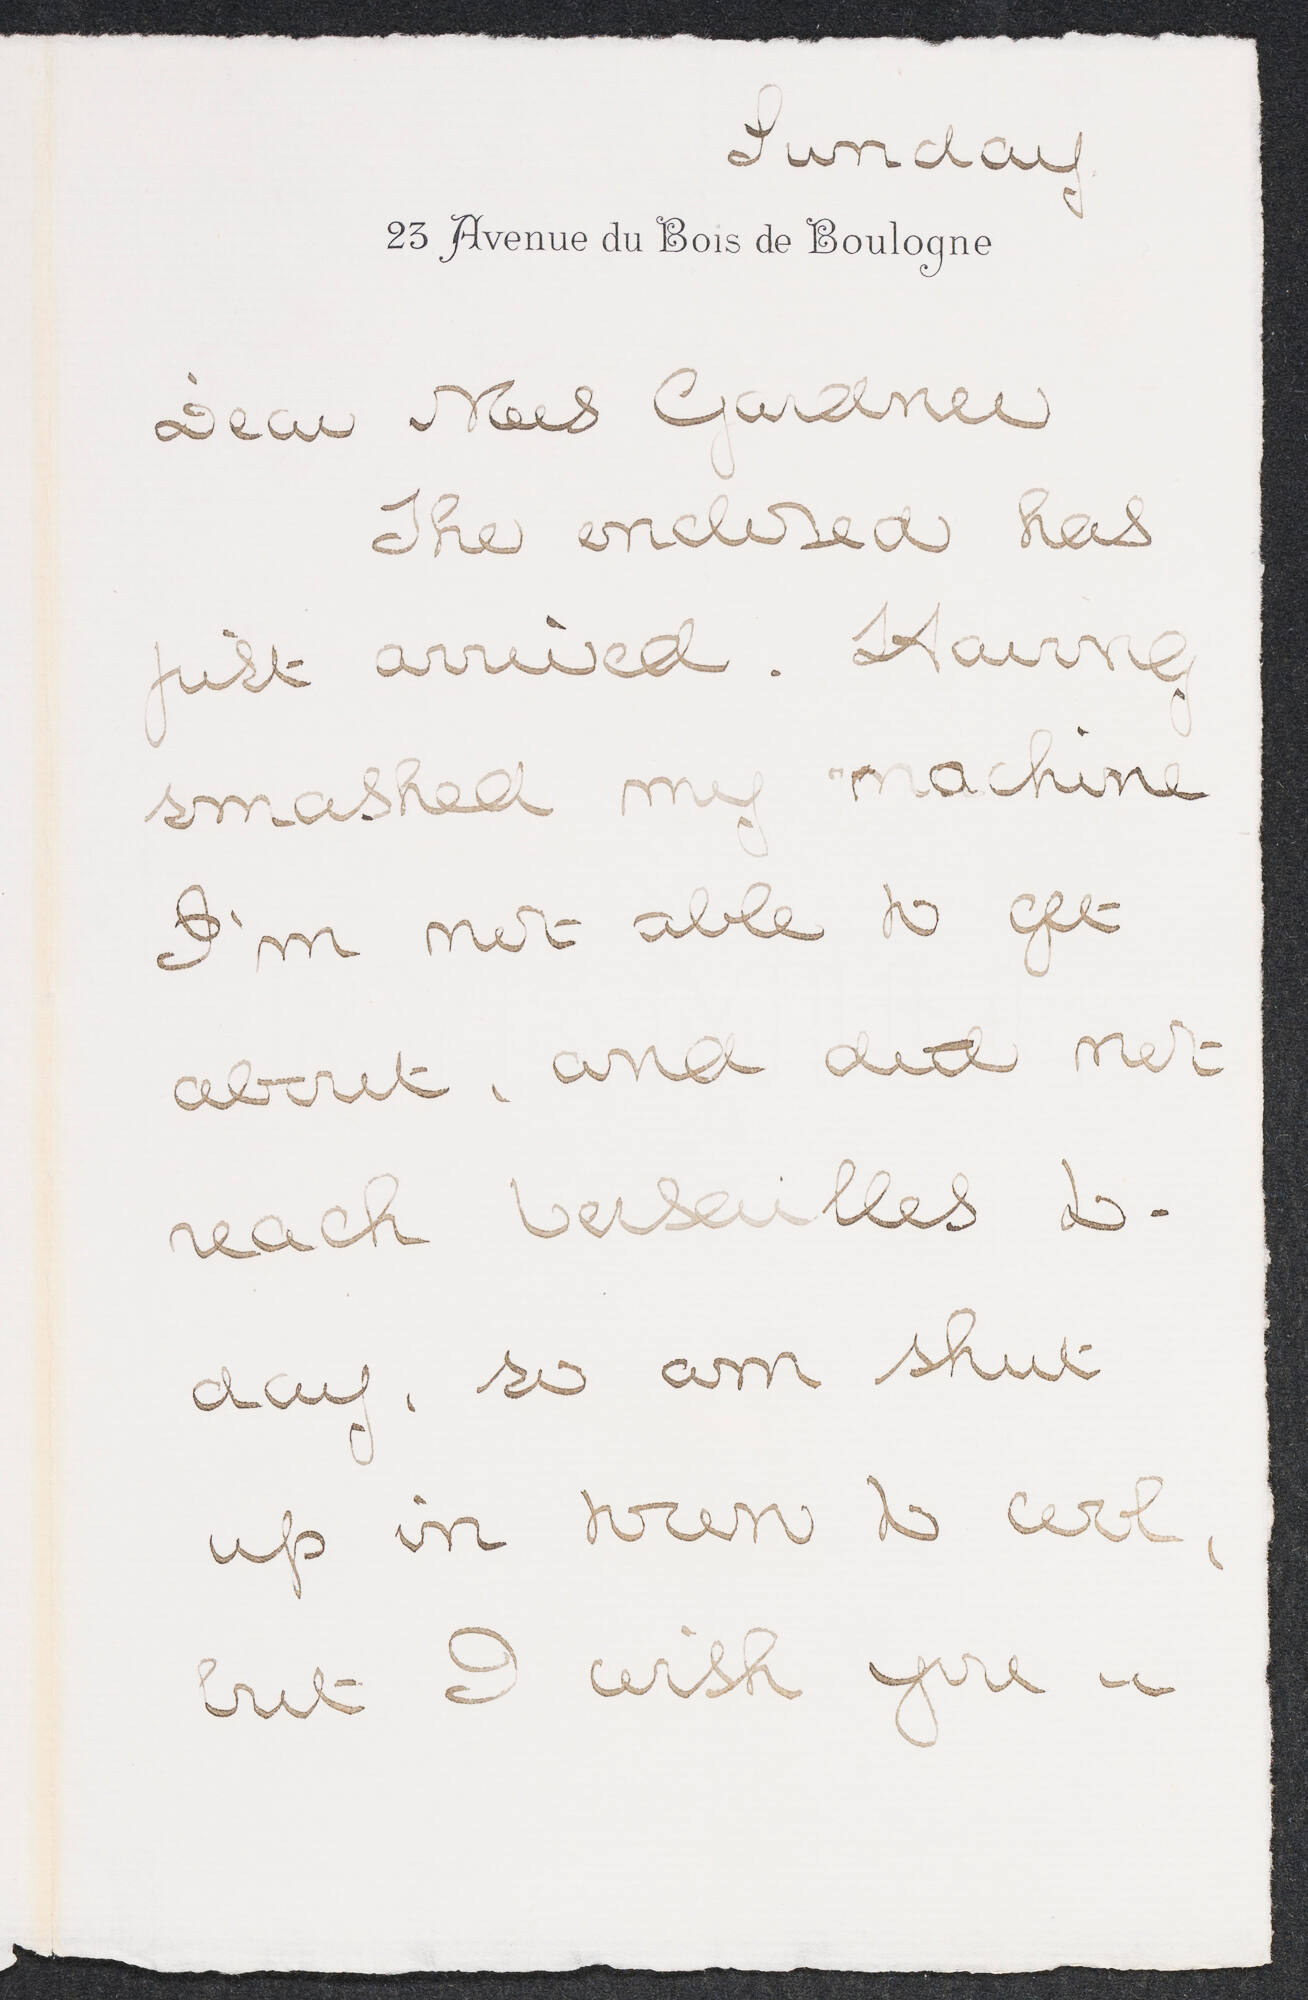 Sunday
23 Avenue du Bois de Boulogne
Dear Mrs Gardner
The enclosed has
just arrived. Having
smashed my machine
I'm not able to get
about, and did not
reach Versailles to-
day, so am shut
up in town to cool,
but I wish you a